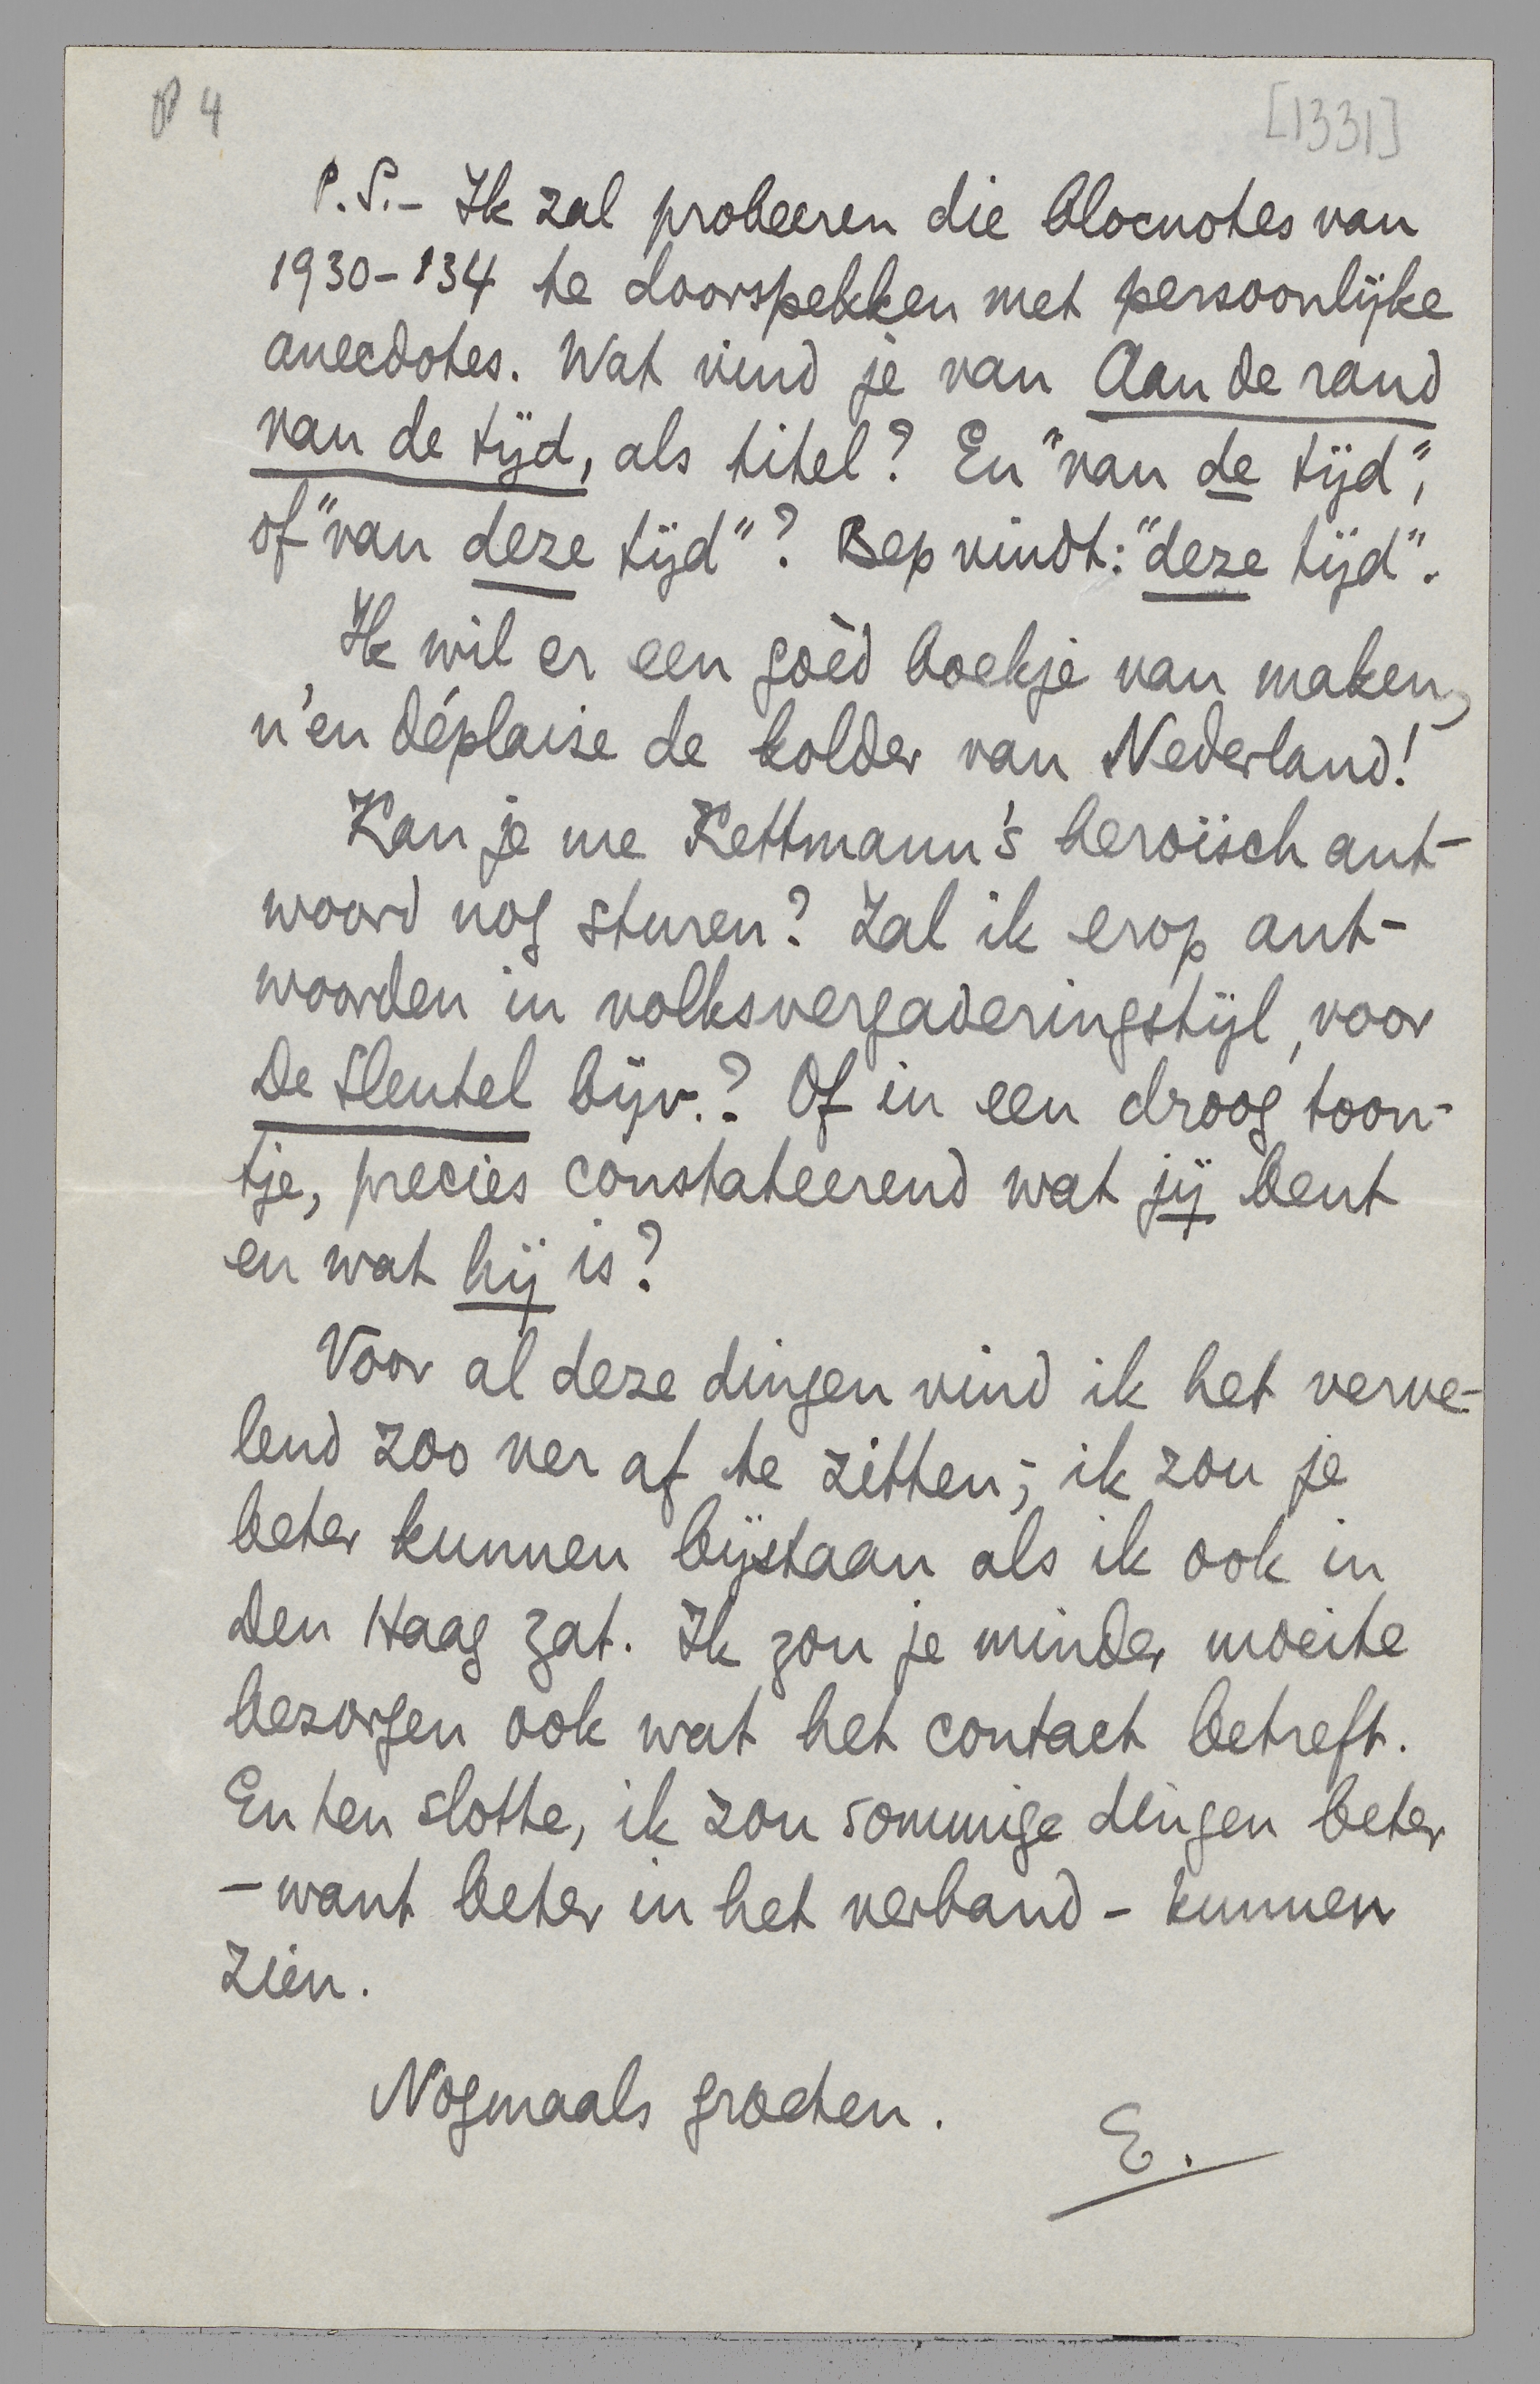 P 4
[1331]
P.S. – Ik zal probeeren die blocnotes van
1930-'34 te doorspekken met persoonlijke
anecdotes. Wat vind je van Aan de rand
van de tijd, als titel? En "van de tijd",
of "van deze tijd"? Bep vindt: "deze tijd".
Ik wil er een goèd boekje van maken,
n'en déplaise de kolder van Nederland!
Kan je me Kettmann's heroïsch ant-
woord nog sturen? Zal ik erop ant-
woorden in volksvergaderingstijl, voor
De Sleutel bijv.? Of in een droog toon-
tje, precies constateerend wat jij bent
en wat hij is?
Voor al deze dingen vind ik het verve-
lend zoo ver af te zitten; ik zou je
beter kunnen bijstaan als ik ook in
den Haag zat. Ik zou je minder moeite
bezorgen ook wat het contact betreft.
En ten slotte, ik zou sommige dingen beter
– want beter in het verband – kunnen
zien.
Nogmaals groeten.
E.